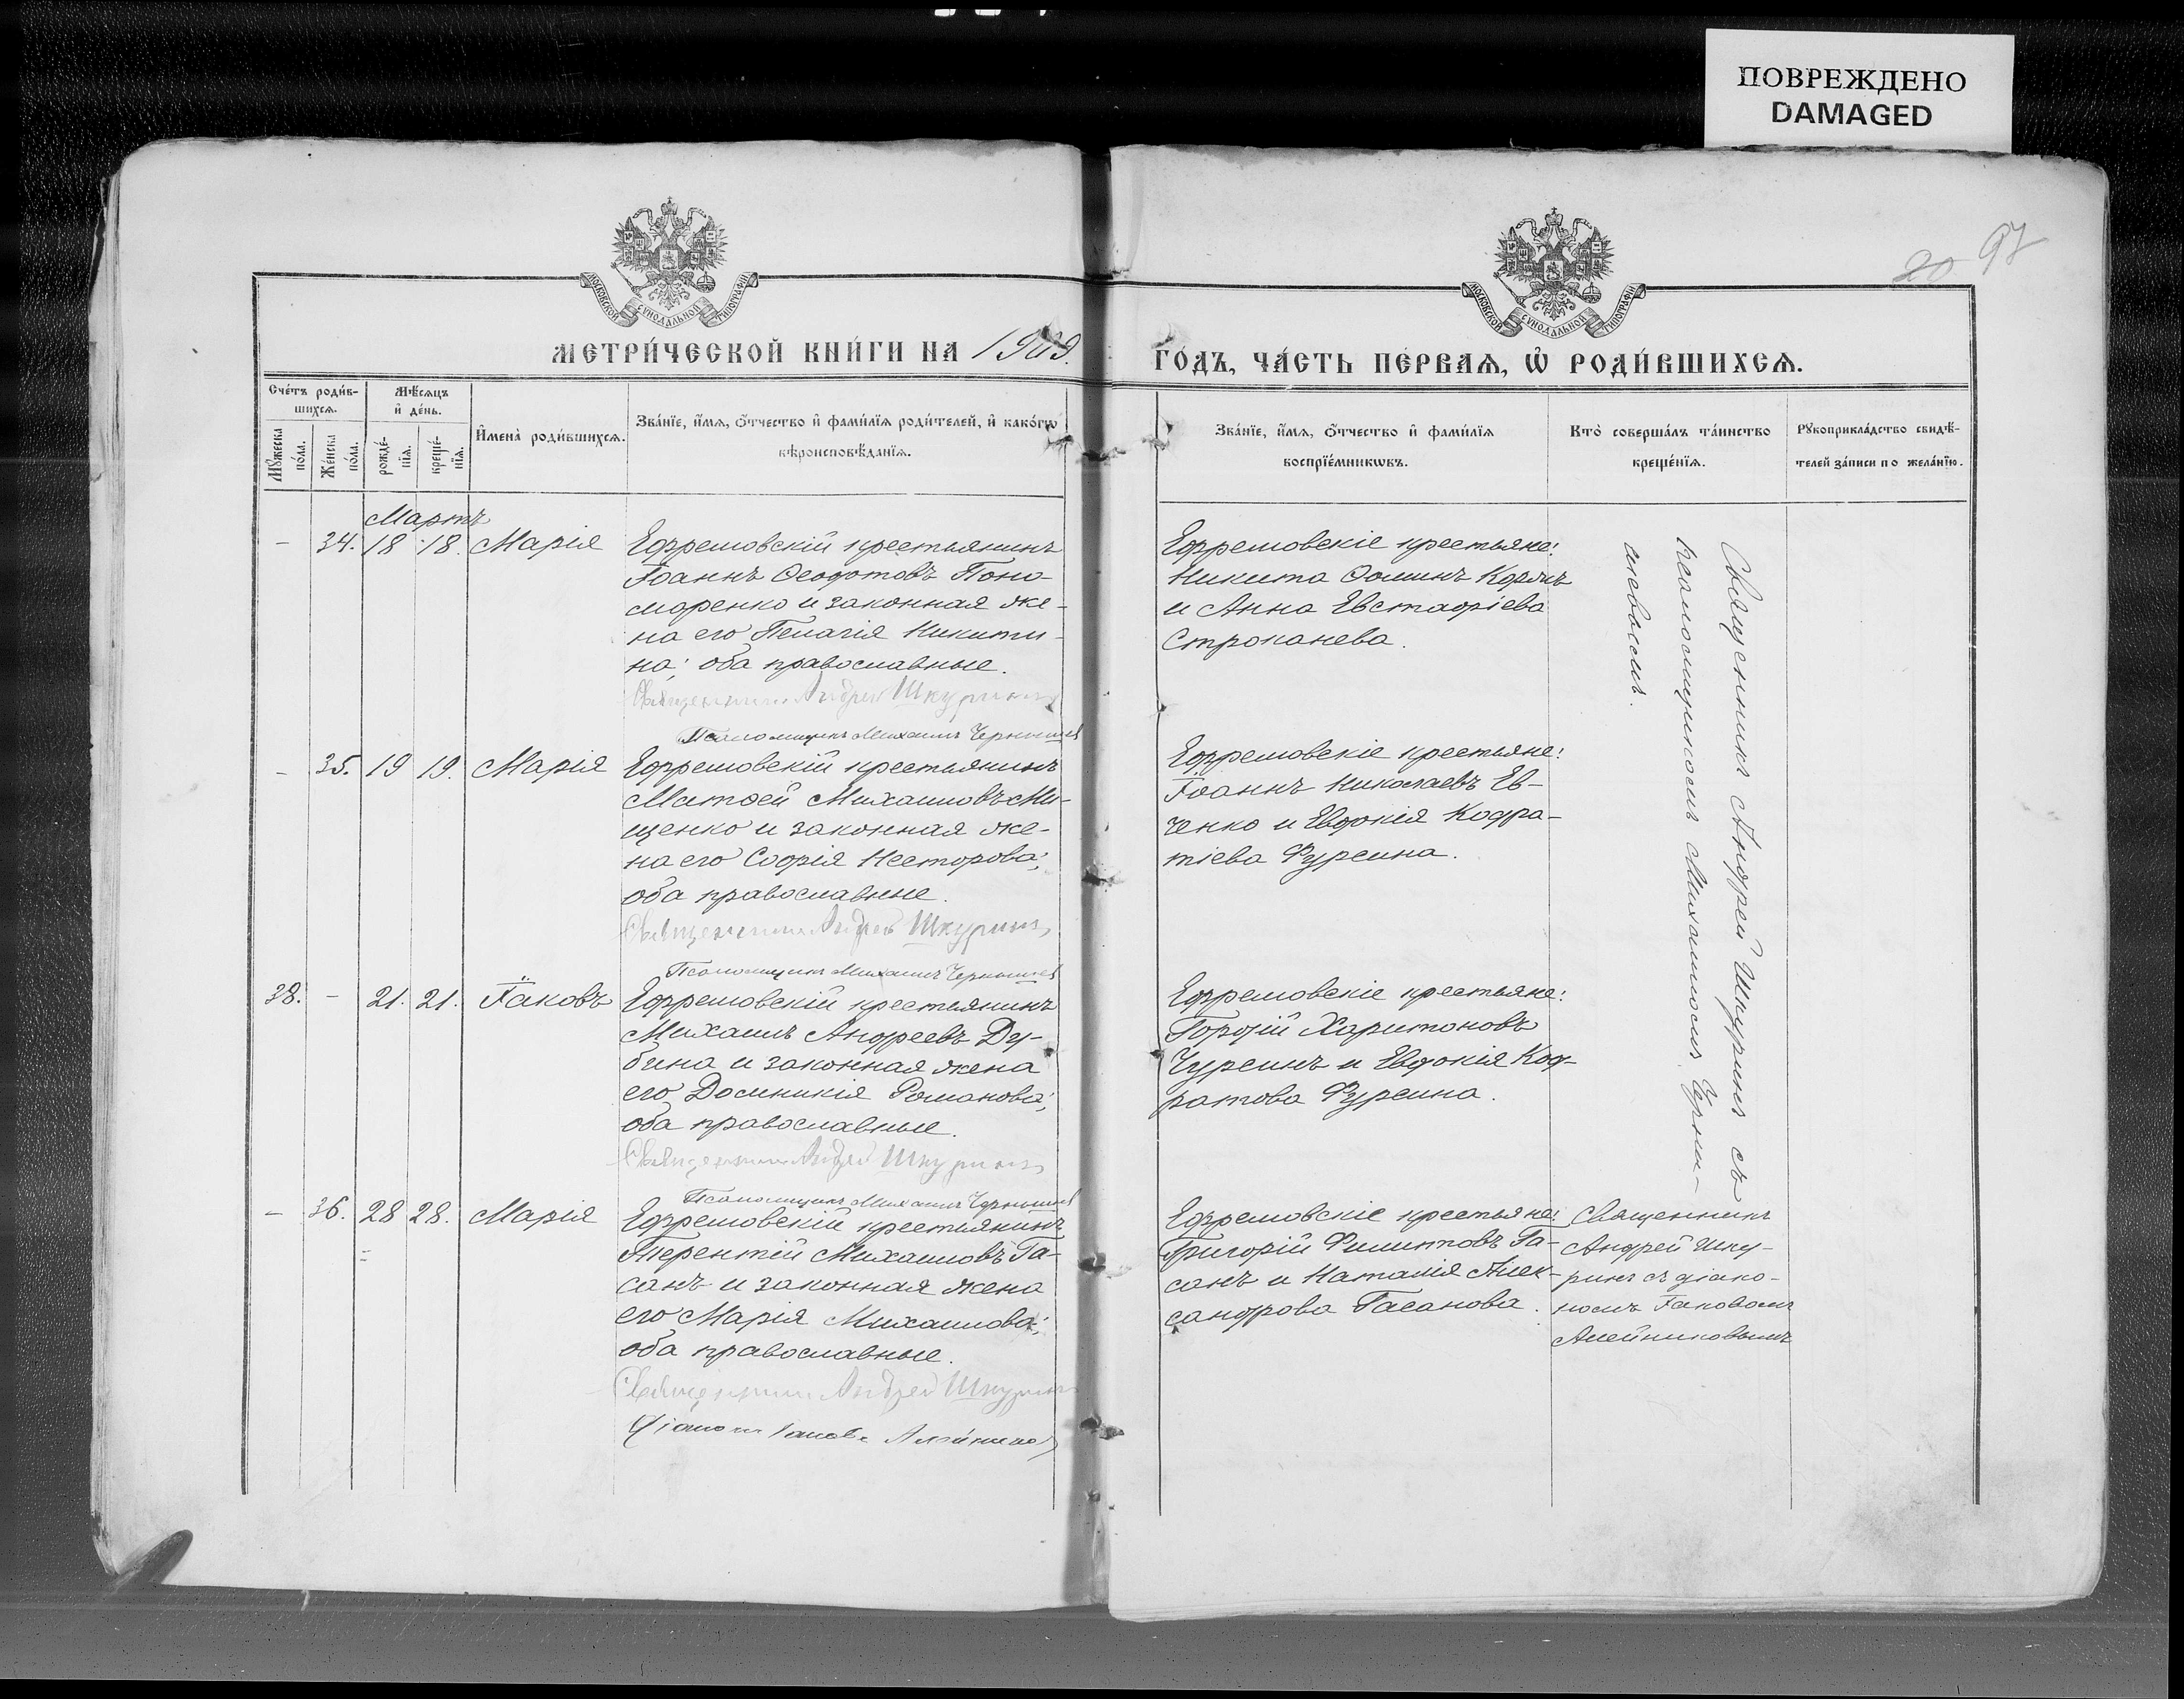 ПОВРЕЖДЕНО
DAMAGED
20 97
МОСКОВСКОЙ СѴНОДАЛЬНОЙ ТИПОГРАФІИ
МОСКОВСКОЙ СѴНОДАЛЬНОЙ ТИПОГРАФІИ
МЕТРИ́ЧЕСКОЙ КНИ́ГИ НА 1909.
ГО́ДЪ, ЧА́СТЬ ПЕ́РВАѦ, Ѽ РОДИ́ВШИХСѦ.
Сче́тъ роди́в-
шихсѧ.
Мꙋ́жеска
по́ла.
Же́нска
по́ла.
Мѣ́сѧцъ
и҆ де́нь.
рожде́-
нїѧ.
креще́-
нїѧ.
И҆мена̀ роди́вшихсѧ.
Зва́нїе, и҆́мѧ, ѻ҆́тчество и҆ фами́лїѧ роди́телей, и҆ како́гѡ
вѣроисповѣ́данїѧ.
Зва́нїе, и҆́мѧ, ѻ҆́тчество и҆ фами́лїѧ
воспрїе́мникѡвъ.
Кто̀ соверша́лъ та́инство
креще́нїѧ.
Рꙋкоприкла́дство свидѣ́-
телей за́писи по жела́нїю.
Мартъ
— 34. 18 18. Марія
Ефремовскій крестьянинъ
Іоаннъ Ѳеодотовъ Поно-
маренко и законная же-
на его Пелагія Никити-
на; оба православные.
Священникъ Андрей Шкуринъ
Псаломщикъ Михаилъ Чернышев
Ефремовскіе крестьяне:
Никита Ѳоминъ
и Анна Евстафіева
Строканева.
Священникъ Андрей Шкуринъ съ
псаломщикомъ Михаиломъ Черны-
шевымъ.
— 35. 19 19. Марія
Ефремовскій крестьянинъ
Матѳей Михаиловъ Ми-
щенко и законная же-
на его Софія Несторова;
оба православные.
Священникъ Андрей Шкуринъ
Псаломщикъ Михаилъ Чернышев
Ефремовскіе крестьяне:
Іоаннъ Николаевъ Ев-
ченко и Евдокія Кодра-
тіева Фурсина.
38. — 21. 21. Іаковъ
Ефремовскій крестьянинъ
Михаилъ Андреевъ Ду-
бина и законная жена
его Домникія Романова;
оба православные.
Священникъ Андрей Шкуринъ
Псаломщикъ Михаилъ Чернышев
Ефремовскіе крестьяне:
Гордій Харитоновъ
Чурсинъ и Евдокія Код-
ратова Фурсина.
— 36. 28 28. Марія
Ефремовскій крестьянинъ
Терентій Михаиловъ Га-
санъ и законная жена
его Марія Михаилова;
оба православные.
Священникъ Андрей Шкуринъ
Діаконъ Іаковъ Алейников
Ефремовскіе крестьяне:
Григорій Филипповъ Га-
санъ и Наталія Алек-
сандрова Гасанова.
Священникъ
Андрей Шку-
ринъ съ діако-
номъ Іаковомъ
Алейниковымъ